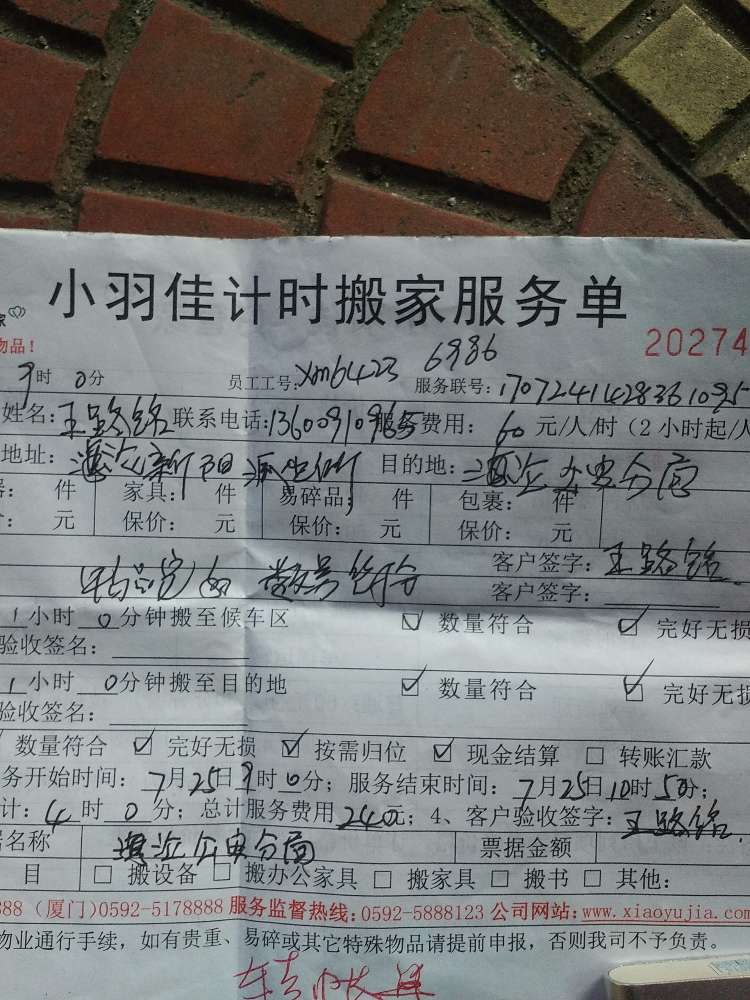 小羽佳计时搬家服务单
家
物品!
20274
9时 0分 员工工号:xm6423 6986 服务联号:
姓名:王路铭 联系电话: 服务费用:60元/人/时(2小时起/人
地址: 新阳派出所 目的地: 公安分局
件 家具: 件 易碎品: 件 包裹: 件
元 保价: 元 保价: 元 保价: 元
物品完好 数量符合 客户签字:王路铭
客户签字:
1小时 0分钟搬至候车区 ☑ 数量符合 ☑ 完好无损
验收签名:
1小时 0分钟搬至目的地 ☑ 数量符合 ☑ 完好无损
验收签名:
数量符合 ☑ 完好无损 ☑ 按需归位 ☑ 现金结算 □ 转账汇款
务开始时间:7月25日9时0分;服务结束时间:7月25日10时50分;
计:4时0分;总计服务费用240元;4、客户验收签字:王路铭
名称 公安分局 票据金额
目 □ 搬设备 □ 搬办公家具 □ 搬家具 □ 搬书 □ 其他:
888 (厦门)0592-5178888 服务监督热线:0592-5888123 公司网站:www.xiaoyujia.com
物业通行手续,如有贵重、易碎或其它特殊物品请提前申报,否则我司不予负责。